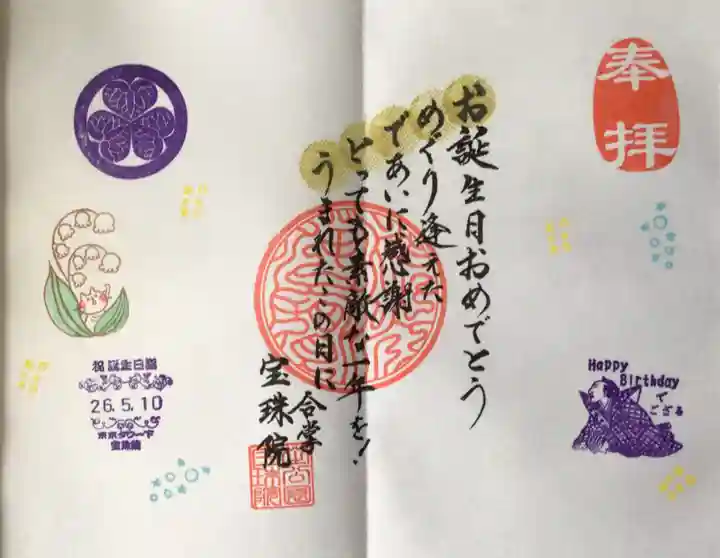 奉拝
お誕生日おめでとう
めぐり逢えた
であいに感謝
とっても素敵な一年を!
うまれたこの日に
合掌
宝珠院
Happy
Birthday
で
ござる
祝 誕生日
26.5.10
東京タワー下
宝珠院